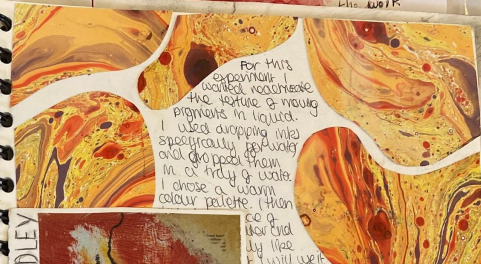 the work
For this
experiment I
wanted
the texture of moving
pigments in liquid.
I used dropping inks
specifically
and dropped them
in a tray of water
I chose a warm
colour palette. I then
and
DLEY